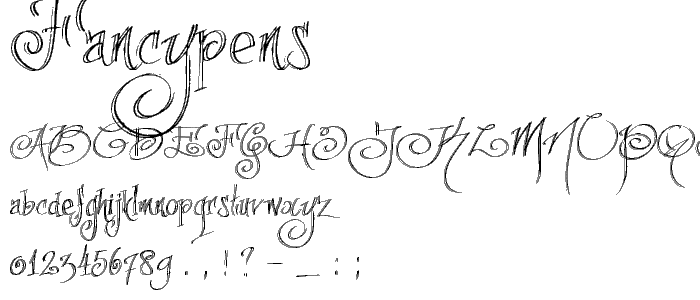 Fancypens
ABCDEFGHIJKLMNOPQ
abcdefghijklmnopqrstuvwxyz
0123456789 . , ! ? - _ : ;